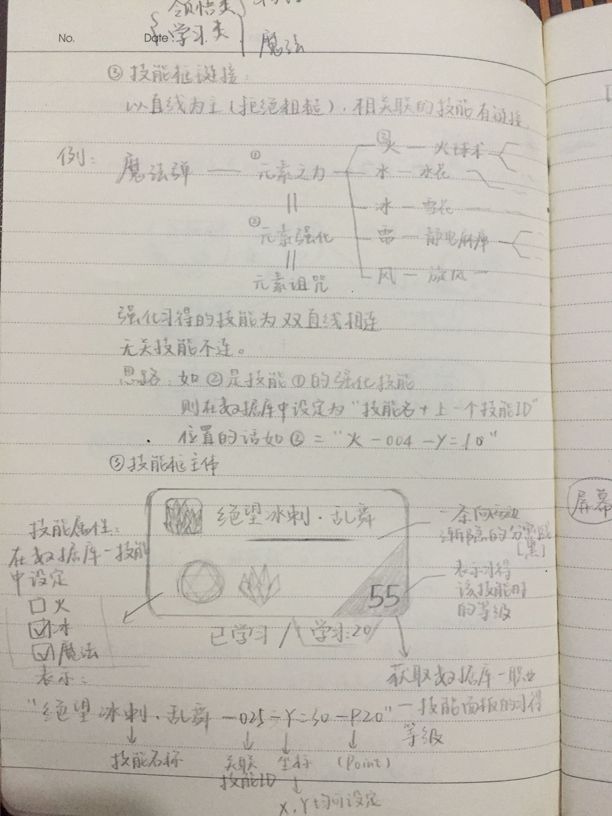 领悟类
No.
Date
学习类
魔法
② 技能框链接:
以直线为主(拒绝粗糙),相关联的技能有链接
例:
魔法弹 — ① 元素之力
③ 火 — 火球术
水 — 水花
冰 — 雪花
雷 — 静电
风 — 旋风
② 元素强化
元素诅咒
强化习得的技能为双直线相连
无关技能不连。
思路: 如②是技能①的强化技能
则在数据库中设定为"技能名+上一个技能ID"
位置的话如③="火-004-Y=10"
③ 技能框主体
屏幕
技能属性:
在数据库-技能
中设定
火
冰
魔法
表示:
绝望冰刺·乱舞
55
已学习 / 学习:20
一条向
渐隐的分
[黑]
表示习得
该技能时
的等级
获取数据库-职业
-技能面板的习得
等级
"绝望冰刺·乱舞-025-Y=30-P20"
技能名称
关联
技能ID
坐标
(Point)
X,Y均可设定